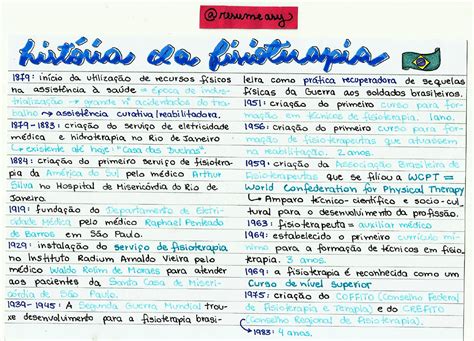 @resumeasy
história da fisioterapia
1879: início da utilização de recursos físicos
na assistência à saúde → época de indus-
trialização → grande nº acidentados do tra-
balho → assistência curativa/reabilitadora.
1879-1883: criação do serviço de eletricidade
médica e hidroterapia no Rio de Janeiro
↳ existente até hoje: "Casa das Duchas".
1884: criação do primeiro serviço de fisiotera-
pia da América do Sul pelo médico Arthur
Silva no Hospital de Misericórdia do Rio de
Janeiro.
1919: fundação do Departamento de Eletri-
cidade Médica pelo médico Raphael Penteado
de Barros em São Paulo.
1929: instalação do serviço de fisioterapia
no Instituto Radium Arnaldo Vieira pelo
médico Waldo Rolim de Moraes para atender
aos pacientes da Santa Casa de Miseri-
córdia de São Paulo.
1939-1945: A Segunda Guerra Mundial trou-
xe desenvolvimento para a fisioterapia brasi-
leira como prática recuperadora de sequelas
físicas da Guerra aos soldados brasileiros.
1951: criação do primeiro curso para for-
mação em técnicos de fisioterapia. 1 ano.
1956: criação do primeiro curso para for-
mação de fisioterapeutas que atuassem
na reabilitação. 2 anos.
1959: criação da Associação Brasileira de
Fisioterapeutas que se filiou a WCPT =
World Confederation for Physical Therapy
↳ Amparo técnico-científico e socio-cul-
tural para o desenvolvimento da profissão.
1963: fisioterapeuta = auxiliar médico
1966: estabelecido o primeiro currículo míni-
mo para a formação de técnicos em fisio-
terapia. 3 anos.
1969: a fisioterapia é reconhecida como um
Curso de nível superior
1975: criação do COFFITO (Conselho Federal
de Fisioterapia e Terapia) e do CREFITO
(Conselho Regional de Fisioterapia).
↳ 1983: 4 anos.